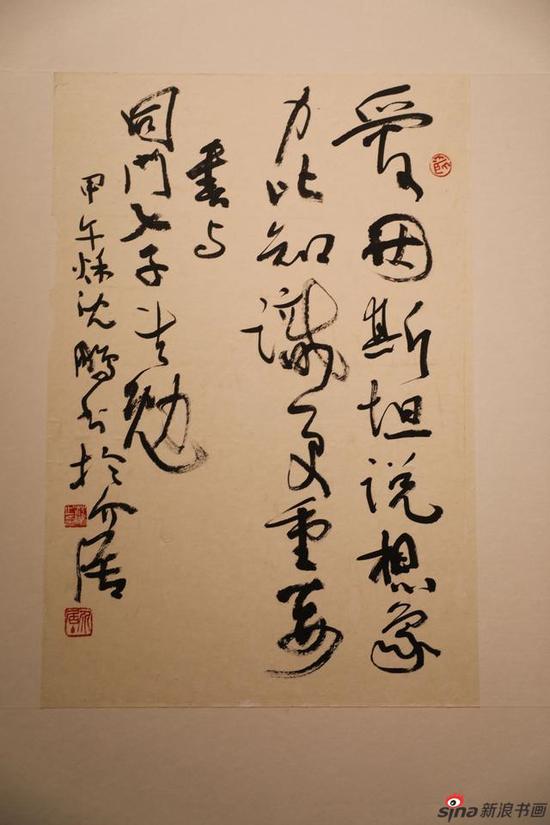 愛因斯坦说想象
力比知識更重要
書与
同門七子共勉
甲午秌沈鵬书於介居
sina新浪书画